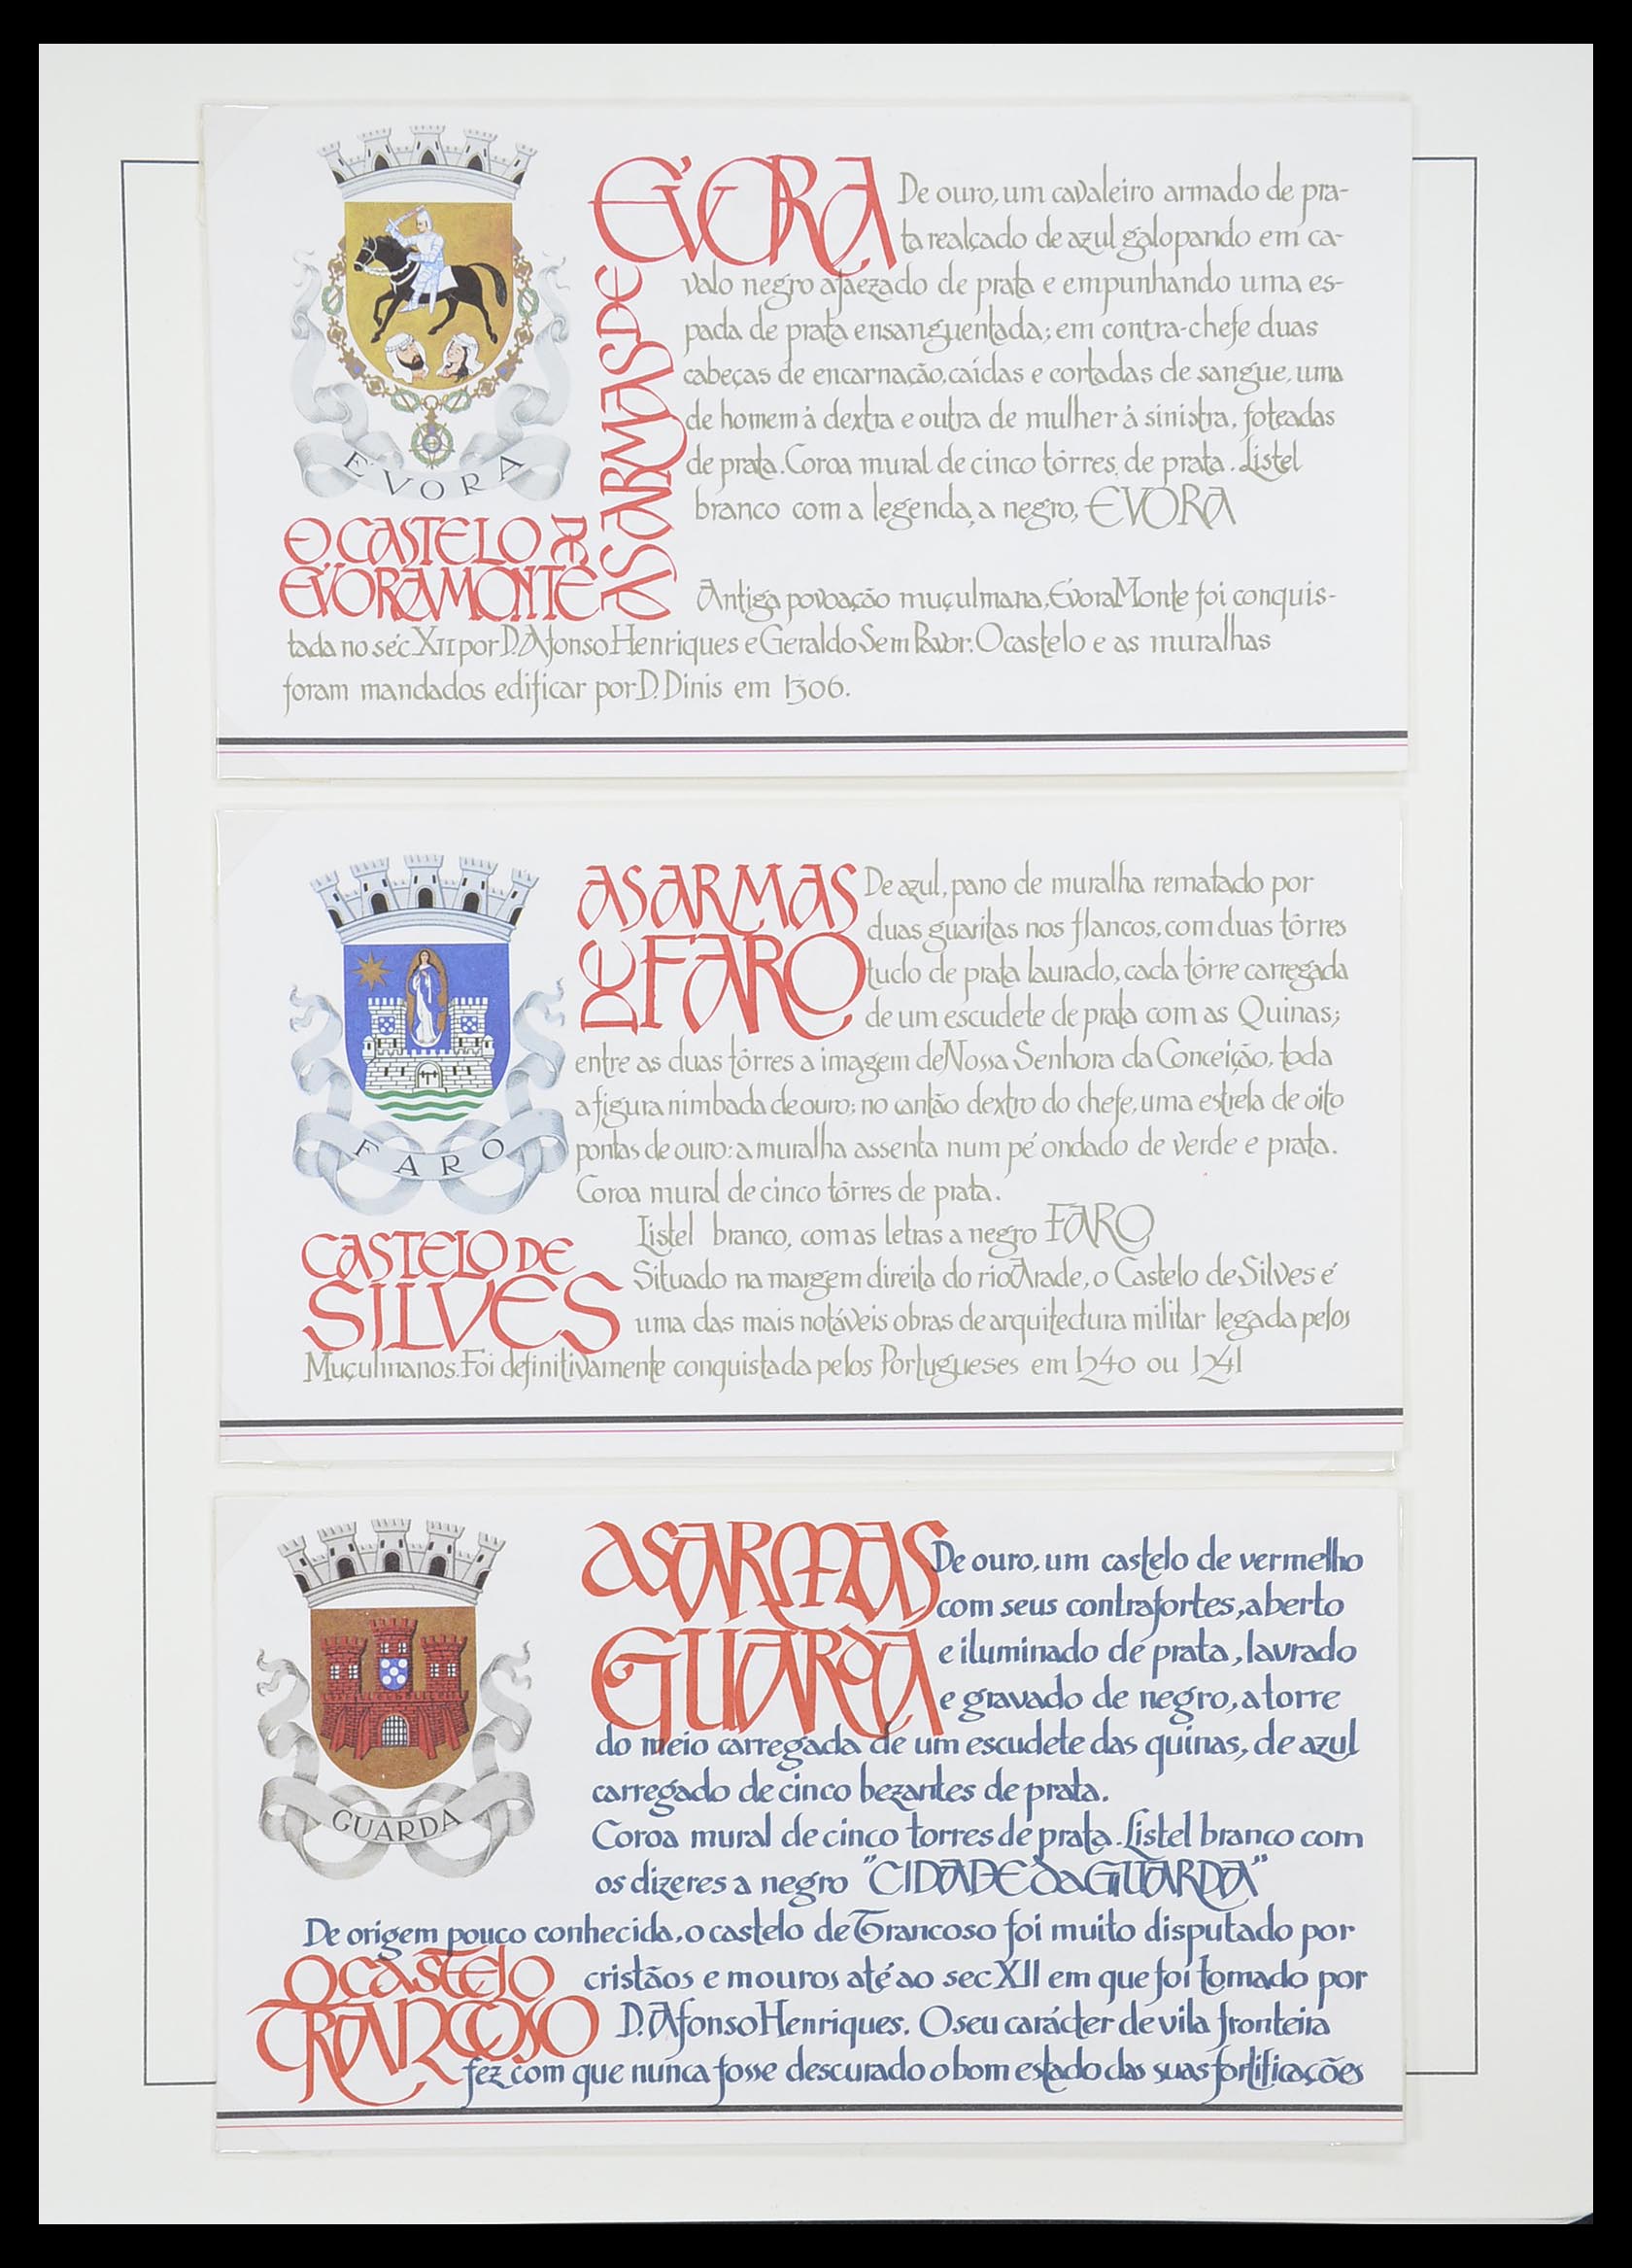 EVORA
AS ARMAS DE
EVORA
De ouro, um cavaleiro armado de pra-
ta realçado de azul galopando em ca-
valo negro ajaezado de prata e empunhando uma es-
pada de prata ensanguentada; em contra-chefe duas
cabeças de encarnação, caídas e cortadas de sangue, uma
de homem à dextra e outra de mulher à sinistra, foteadas
de prata. Coroa mural de cinco tôrres de prata. Listel
branco com a legenda, a negro, EVORA
O CASTELO DE
EVORAMONTE
Antiga povoação muçulmana, ÉvoraMonte foi conquis-
tada no séc. XII por D. Afonso Henriques e Geraldo Sem Pavor. O castelo e as muralhas
foram mandados edificar por D. Dinis em 1306.
FARO
AS ARMAS
DE FARO
De azul, pano de muralha rematado por
duas guaritas nos flancos, com duas tôrres
tudo de prata laurado, cada tôrre carregada
de um escudete de prata com as Quinas;
entre as duas tôrres a imagem de Nossa Senhora da Conceição, toda
a figura nimbada de ouro; no cantão dextro do chefe, uma estrela de oito
pontas de ouro: a muralha assenta num pé ondado de verde e prata.
Coroa mural de cinco tôrres de prata.
Listel branco, com as letras a negro FARO
CASTELO DE
SILVES
Situado na margem direita do rio Arade, o Castelo de Silves é
uma das mais notáveis obras de arquitectura militar legada pelos
Muçulmanos. Foi definitivamente conquistada pelos Portugueses em 1240 ou 1241
GUARDA
AS ARMAS
GUARDA
De ouro, um castelo de vermelho
com seus contrafortes, aberto
e iluminado de prata, lavrado
e gravado de negro, a torre
do meio carregada de um escudete das quinas, de azul
carregado de cinco bezantes de prata.
Coroa mural de cinco torres de prata. Listel branco com
os dizeres a negro "CIDADE da GUARDA"
De origem pouco conhecida, o castelo de Trancoso foi muito disputado por
O CASTELO
TRANCOSO
cristãos e mouros até ao sec XII em que foi tomado por
D. Afonso Henriques. O seu carácter de vila fronteira
fez com que nunca fosse descurado o bom estado das suas fortificações